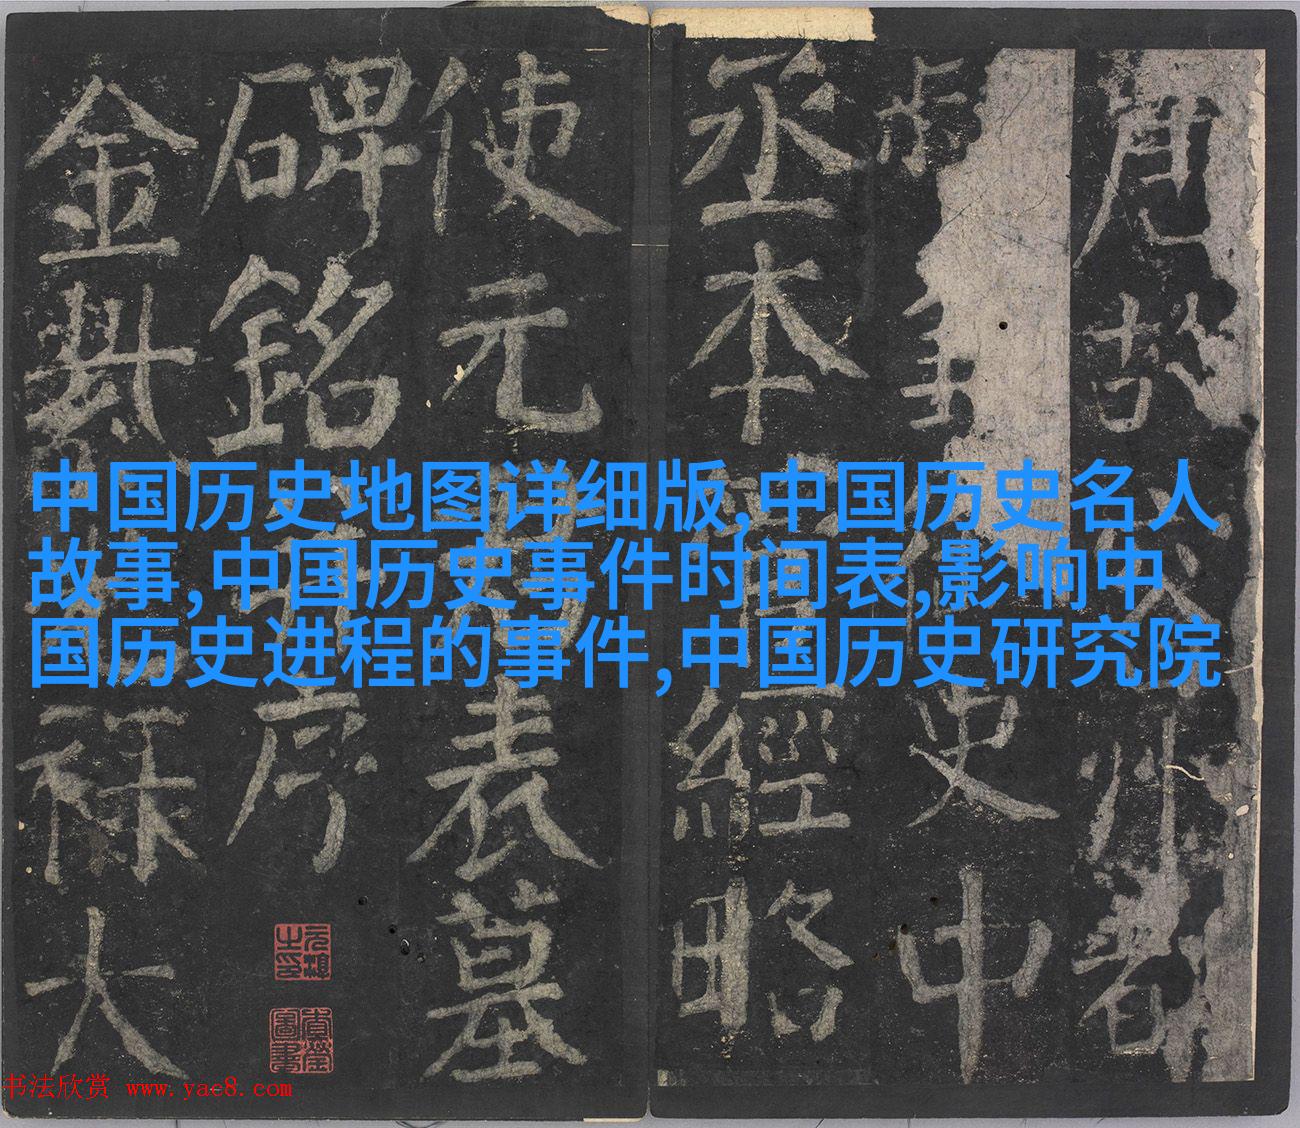 故州都
史中
丞本經略
使元表墓
碑銘序
金紫禄大
中国历史地图详细版,中国历史名人
故事,中国历史事件时间表,影响中
国历史进程的事件,中国历史研究院
书法欣赏 www.yac8.com